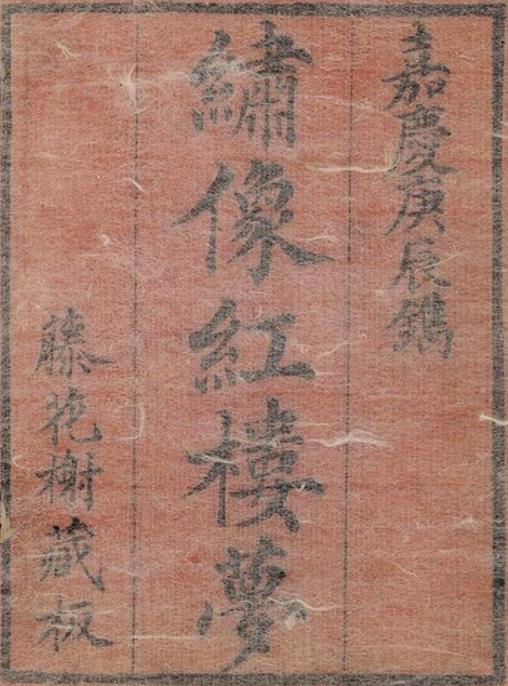 嘉慶庚辰鐫
繡像紅樓夢
藤花榭藏板